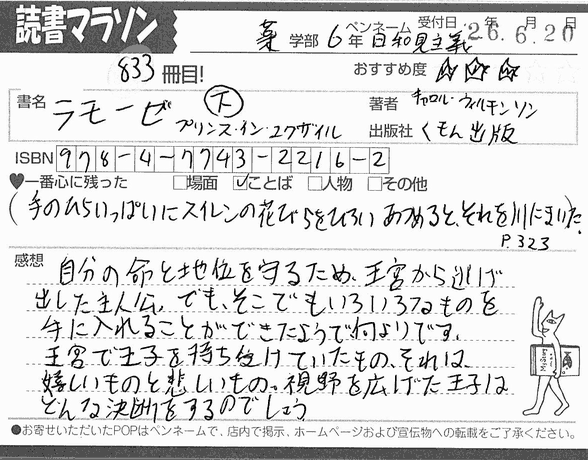 読書マラソン
833冊目!
薬学部 6年 ペンネーム 日和見主義
受付日 26年 6月 20日
おすすめ度 ☆☆☆
書名 ラモーゼ 下 プリンス・イン・エグザイル
著者 キャロル・ウィルキンソン
出版社 くもん出版
ISBN 978-4-7743-2216-2
♥一番心に残った □場面 ☑ことば □人物 □その他
(手のひらいっぱいにスイレンの花びらをひろいあつめると、それを川にまいた。
P.323
感想
自分の命と地位を守るため、王宮から逃げ
出した主人公。でも、そこでもいろいろなものを
手に入れることができたようで何よりです。
王宮で王子を待ち受けていたもの、それは、
嬉しいものと悲しいもの。視野を広げた王子は
どんな決断をするのでしょう
●お寄せいただいたPOPはペンネームで、店内で掲示、ホームページおよび宣伝物への転載をご了承ください。